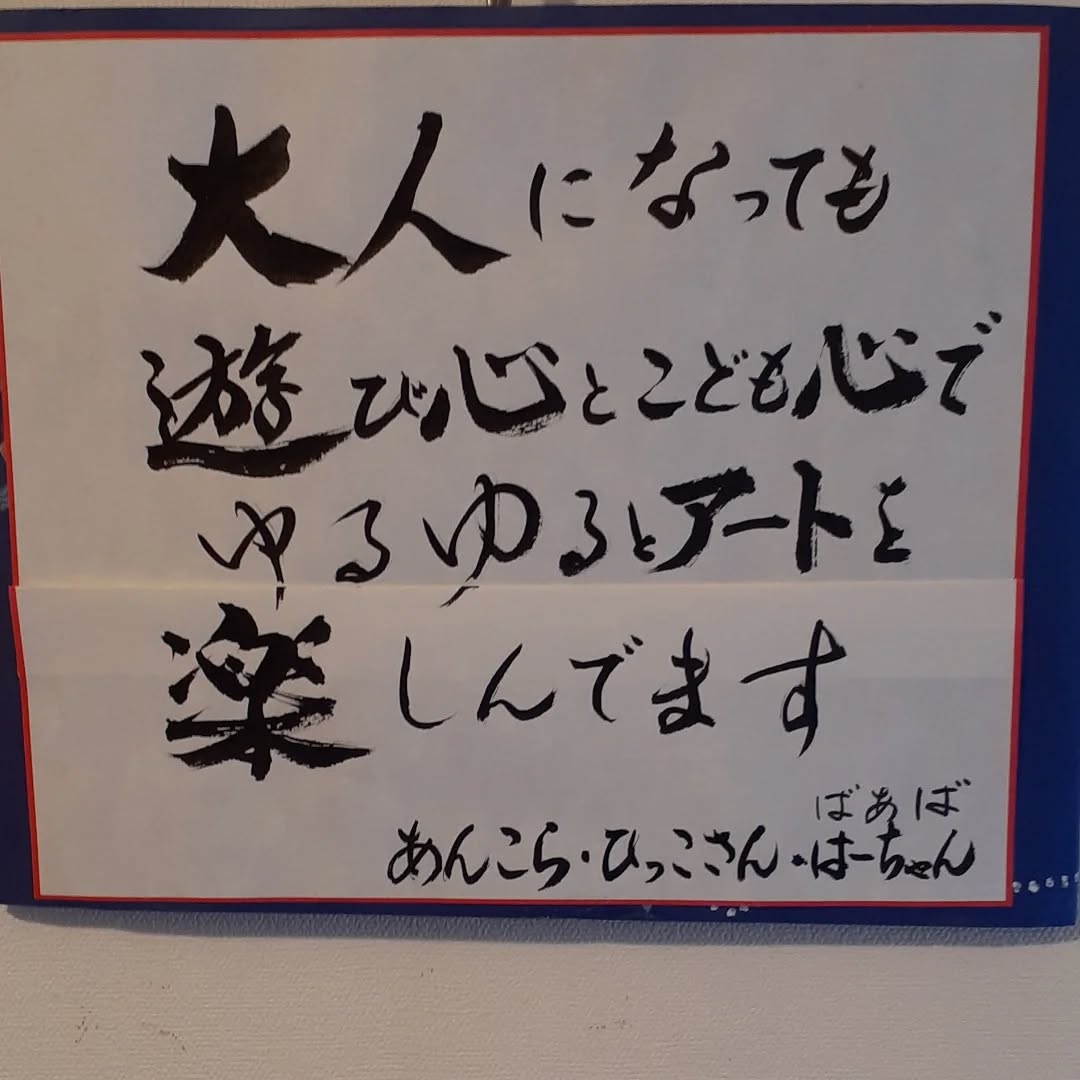 大人になっても
遊び心とこども心で
ゆるゆるとアートを
楽しんでます
ばあば
あんこら・ひっこさん・はーちゃん